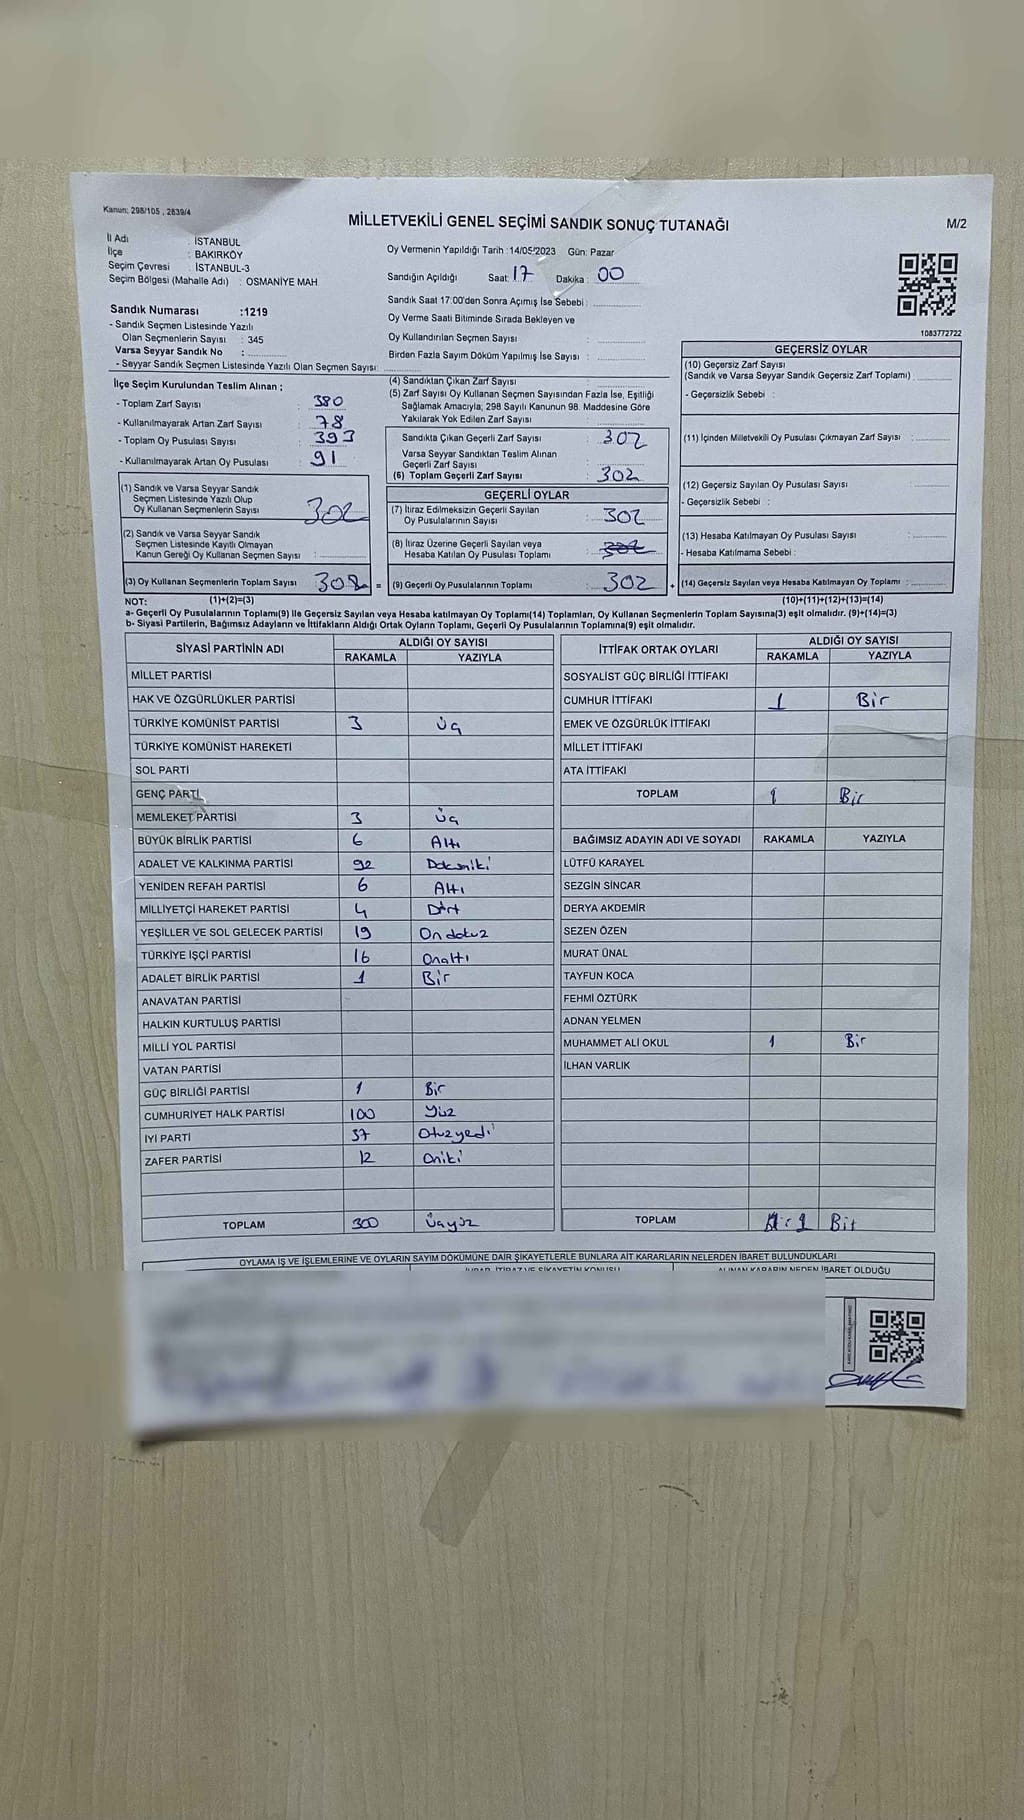 Kanun: 298/105 , 2839/4
MİLLETVEKİLİ GENEL SEÇİMİ SANDIK SONUÇ TUTANAĞI
M/2
İl Adı : İSTANBUL
İlçe : BAKIRKÖY
Seçim Çevresi : İSTANBUL-3
Seçim Bölgesi (Mahalle Adı) : OSMANİYE MAH
Oy Vermenin Yapıldığı Tarih : 14/05/2023 Gün: Pazar
Sandığın Açıldığı Saat: 17 Dakika : 00
Sandık Saat 17:00'den Sonra Açımış İse Sebebi :
Oy Verme Saati Bitiminde Sırada Bekleyen ve
Oy Kullandırılan Seçmen Sayısı :
Birden Fazla Sayım Döküm Yapılmış İse Sayısı :
1083772722
Sandık Numarası :1219
- Sandık Seçmen Listesinde Yazılı
Olan Seçmenlerin Sayısı : 345
Varsa Seyyar Sandık No :
- Seyyar Sandık Seçmen Listesinde Yazılı Olan Seçmen Sayısı :
İlçe Seçim Kurulundan Teslim Alınan ;
- Toplam Zarf Sayısı : 380
- Kullanılmayarak Artan Zarf Sayısı : 78
- Toplam Oy Pusulası Sayısı : 393
- Kullanılmayarak Artan Oy Pusulası : 91
(1) Sandık ve Varsa Seyyar Sandık
Seçmen Listesinde Yazılı Olup
Oy Kullanan Seçmenlerin Sayısı : 302
(2) Sandık ve Varsa Seyyar Sandık
Seçmen Listesinde Kayıtlı Olmayan
Kanun Gereği Oy Kullanan Seçmen Sayısı :
(3) Oy Kullanan Seçmenlerin Toplam Sayısı : 302 =
(4) Sandıktan Çıkan Zarf Sayısı :
(5) Zarf Sayısı Oy Kullanan Seçmen Sayısından Fazla İse, Eşitliği
Sağlamak Amacıyla; 298 Sayılı Kanunun 98. Maddesine Göre
Yakılarak Yok Edilen Zarf Sayısı :
Sandıkta Çıkan Geçerli Zarf Sayısı : 302
Varsa Seyyar Sandıktan Teslim Alınan
Geçerli Zarf Sayısı :
(6) Toplam Geçerli Zarf Sayısı : 302
GEÇERLİ OYLAR
(7) İtiraz Edilmeksizin Geçerli Sayılan
Oy Pusulalarının Sayısı : 302
(8) İtiraz Üzerine Geçerli Sayılan veya
Hesaba Katılan Oy Pusulası Toplamı :
(9) Geçerli Oy Pusulalarının Toplamı : 302 +
GEÇERSİZ OYLAR
(10) Geçersiz Zarf Sayısı
(Sandık ve Varsa Seyyar Sandık Geçersiz Zarf Toplamı) :
- Geçersizlik Sebebi :
(11) İçinden Milletvekili Oy Pusulası Çıkmayan Zarf Sayısı :
(12) Geçersiz Sayılan Oy Pusulası Sayısı :
- Geçersizlik Sebebi :
(13) Hesaba Katılmayan Oy Pusulası Sayısı :
- Hesaba Katılmama Sebebi :
(14) Geçersiz Sayılan veya Hesaba Katılmayan Oy Toplamı :
NOT: (1)+(2)=(3) (10)+(11)+(12)+(13)=(14)
a- Geçerli Oy Pusulalarının Toplamı(9) ile Geçersiz Sayılan veya Hesaba katılmayan Oy Toplamı(14) Toplamları, Oy Kullanan Seçmenlerin Toplam Sayısına(3) eşit olmalıdır. (9)+(14)=(3)
b- Siyasi Partilerin, Bağımsız Adayların ve İttifakların Aldığı Ortak Oyların Toplamı, Geçerli Oy Pusulalarının Toplamına(9) eşit olmalıdır.
SİYASİ PARTİNİN ADI ALDIĞI OY SAYISI
RAKAMLA YAZIYLA
MİLLET PARTİSİ
HAK VE ÖZGÜRLÜKLER PARTİSİ
TÜRKİYE KOMÜNİST PARTİSİ 3 Üç
TÜRKİYE KOMÜNİST HAREKETİ
SOL PARTİ
GENÇ PARTİ
MEMLEKET PARTİSİ 3 Üç
BÜYÜK BİRLİK PARTİSİ 6 Altı
ADALET VE KALKINMA PARTİSİ 92 Doksaniki
YENİDEN REFAH PARTİSİ 6 Altı
MİLLİYETÇİ HAREKET PARTİSİ 4 Dört
YEŞİLLER VE SOL GELECEK PARTİSİ 19 Ondokuz
TÜRKİYE İŞÇİ PARTİSİ 16 Onaltı
ADALET BİRLİK PARTİSİ 1 Bir
ANAVATAN PARTİSİ
HALKIN KURTULUŞ PARTİSİ
MİLLİ YOL PARTİSİ
VATAN PARTİSİ
GÜÇ BİRLİĞİ PARTİSİ 1 Bir
CUMHURİYET HALK PARTİSİ 100 Yüz
İYİ PARTİ 37 Otuzyedi
ZAFER PARTİSİ 12 Oniki
TOPLAM 300 Üçyüz
İTTİFAK ORTAK OYLARI ALDIĞI OY SAYISI
RAKAMLA YAZIYLA
SOSYALİST GÜÇ BİRLİĞİ İTTİFAKI
CUMHUR İTTİFAKI 1 Bir
EMEK VE ÖZGÜRLÜK İTTİFAKI
MİLLET İTTİFAKI
ATA İTTİFAKI
TOPLAM 1 Bir
BAĞIMSIZ ADAYIN ADI VE SOYADI RAKAMLA YAZIYLA
LÜTFÜ KARAYEL
SEZGİN SİNCAR
DERYA AKDEMİR
SEZEN ÖZEN
MURAT ÜNAL
TAYFUN KOCA
FEHMİ ÖZTÜRK
ADNAN YELMEN
MUHAMMET ALİ OKUL 1 Bir
İLHAN VARLIK
TOPLAM 1 Bir
OYLAMA İŞ VE İŞLEMLERİNE VE OYLARIN SAYIM DÖKÜMÜNE DAİR ŞİKAYETLERLE BUNLARA AİT KARARLARIN NELERDEN İBARET BULUNDUKLARI
İTİRAZ VE ŞİKAYETİN KONUSU ALINAN KARARIN NEDEN İBARET OLDUĞU